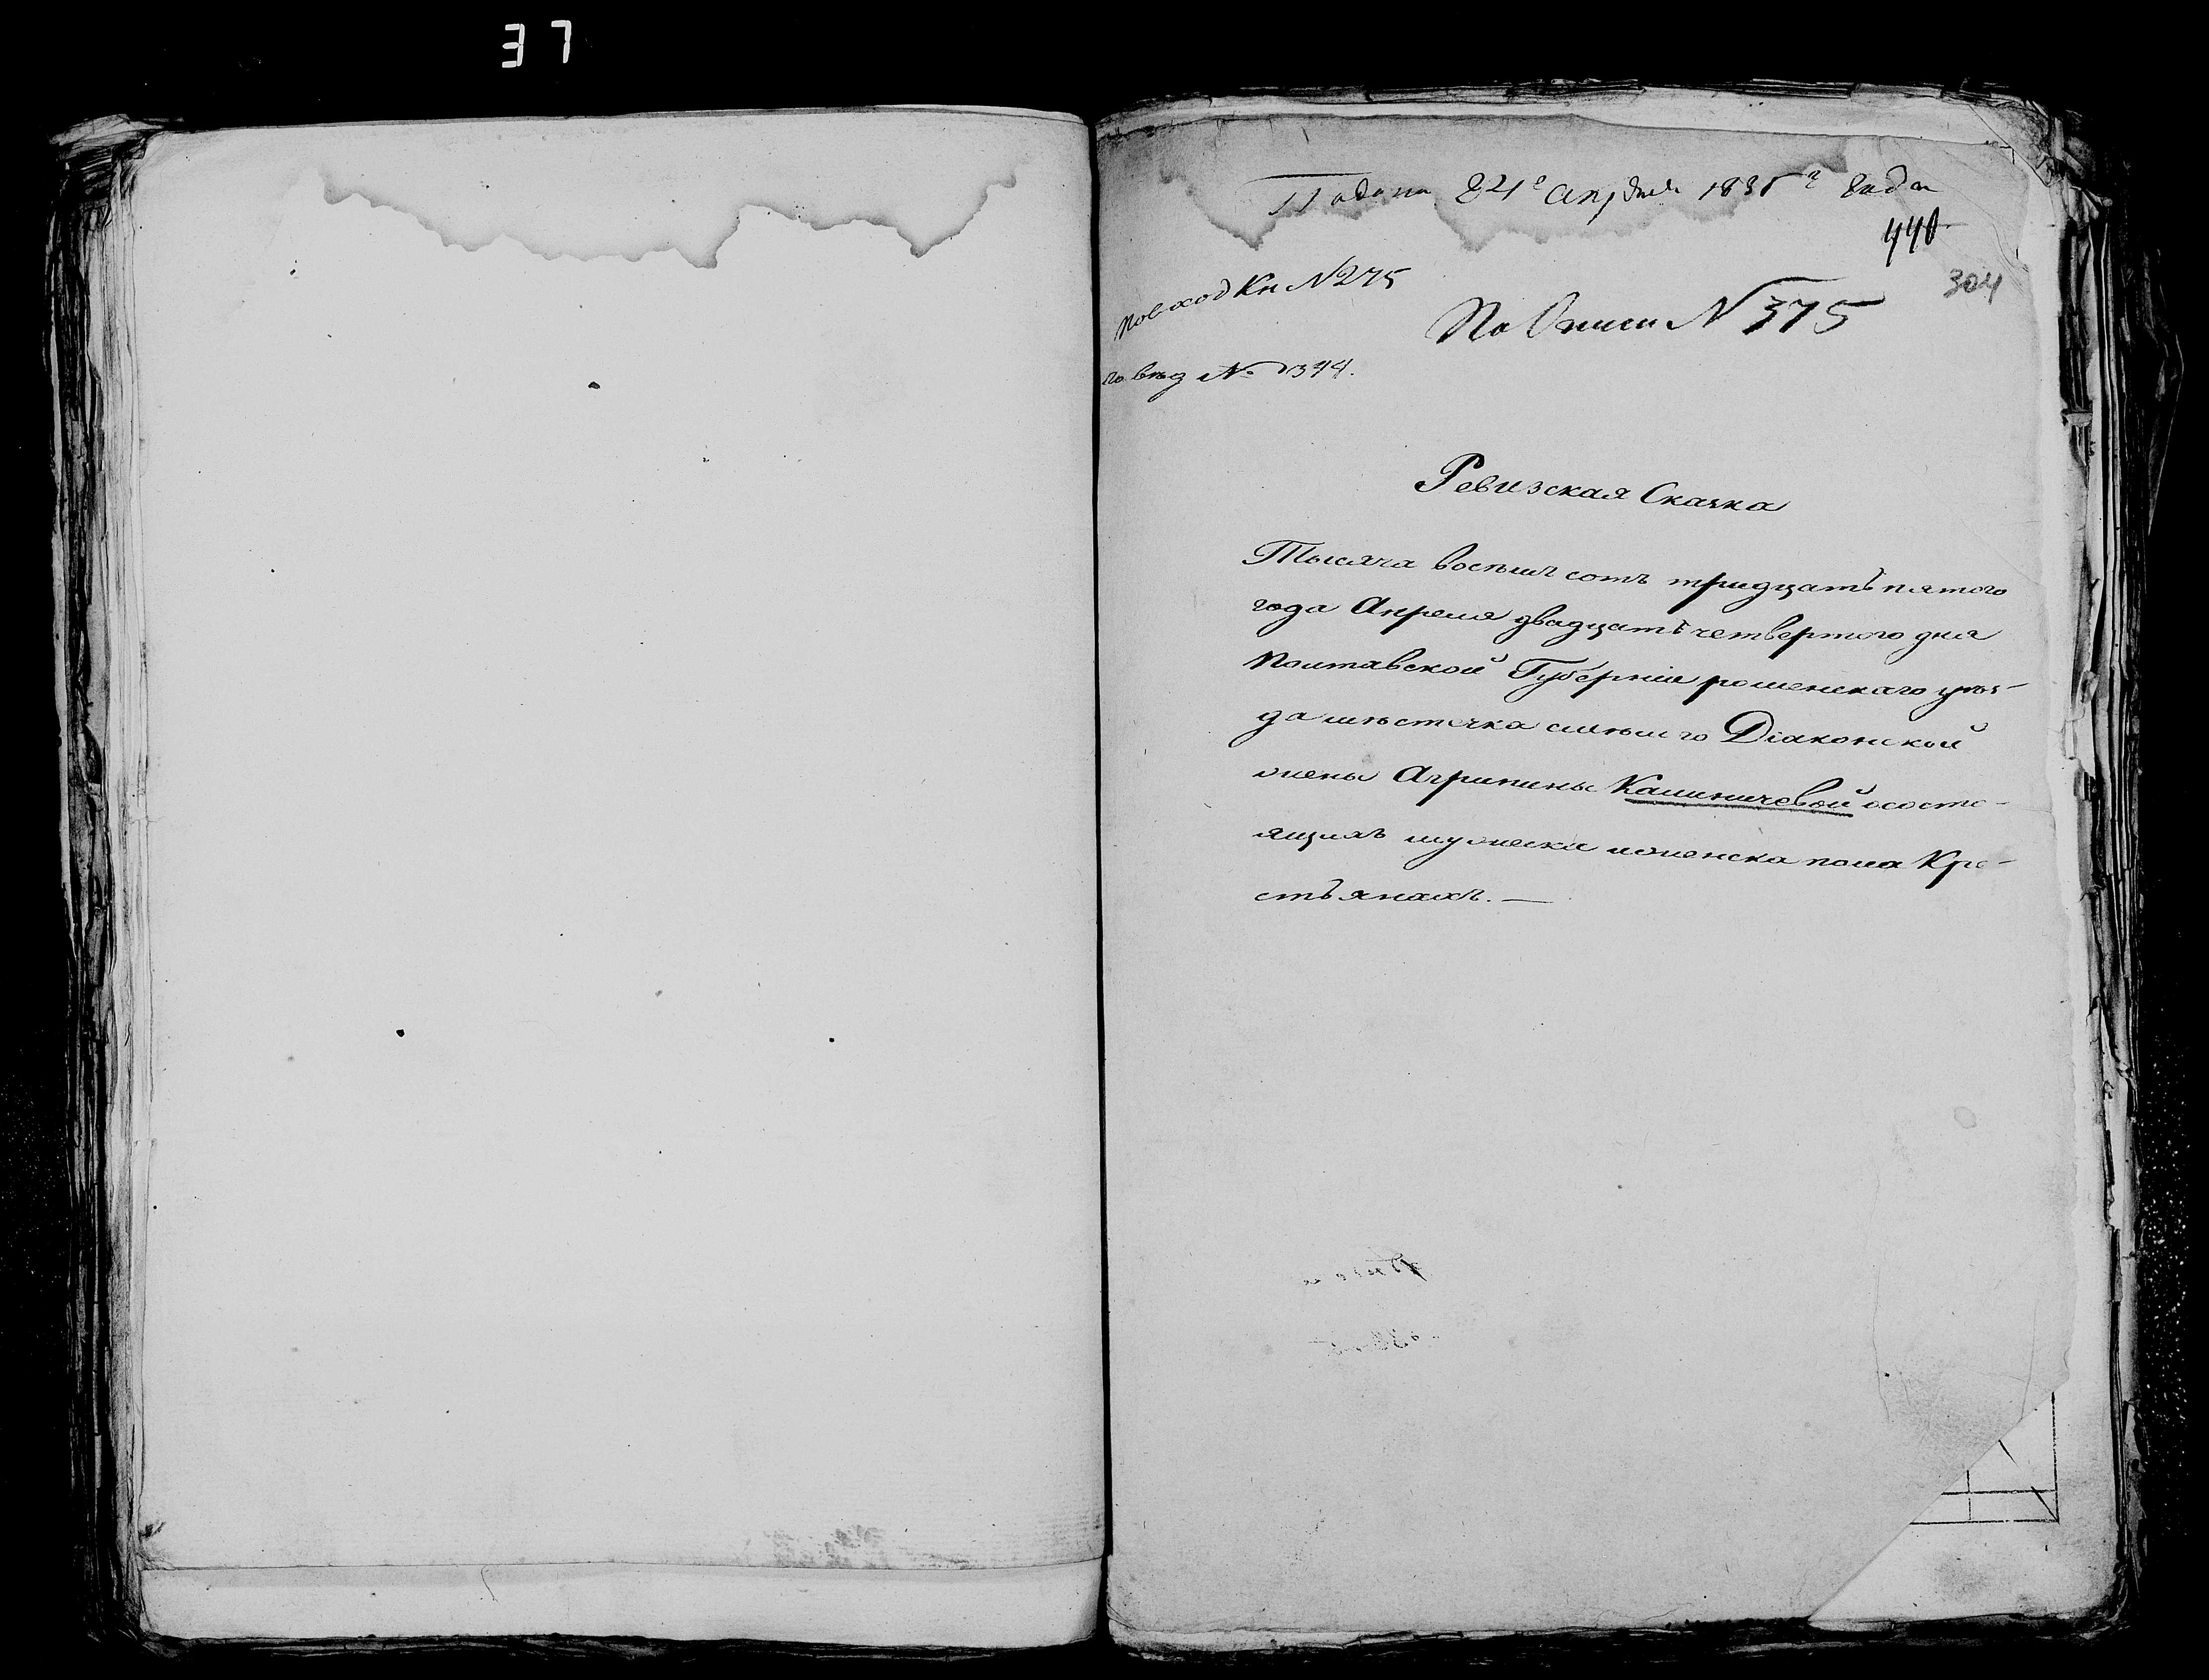 37
Подана 24г апреля 1835г года
440
304
по входКн №275
По Описи №375
по вѣд № 344.
Ревизская Сказка
Тысяча восемь сотъ тридцать пятого
года Апреля двадцать четвертого дня
Полтавской Губерніи роменскаго уѣз-
да мѣстечка смѣлого Діаконской
жены Агрипины Калиничевой ососто-
ящихъ мужеска иженска пола Кре-
стьянахъ. —